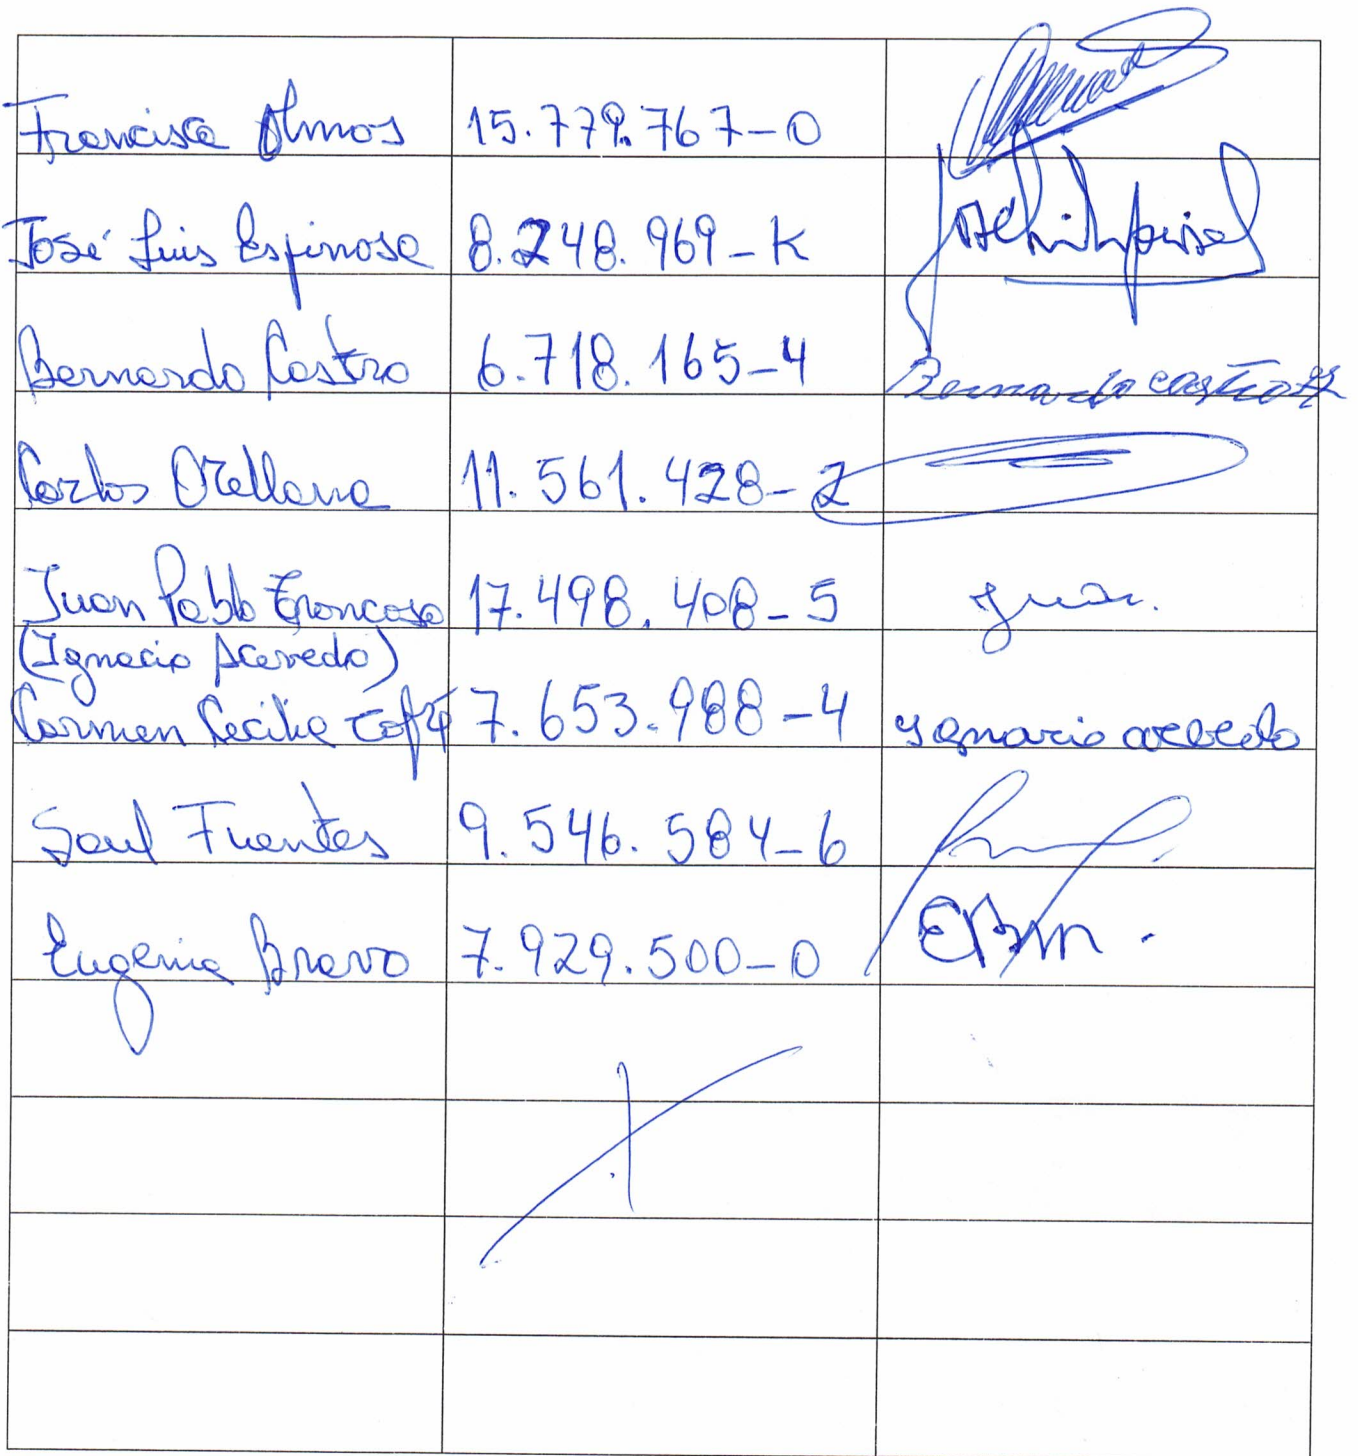 Francisca Olmos 15.779.767-0
José Luis Espinosa 8.248.969-K
Bernardo Castro 6.718.165-4 Bernardo castro
Carlos Orellana 11.561.428-2
Juan Pablo Troncoso 17.498.408-5 Juan.
(Ignacio Acevedo)
Carmen Cecilia 7.653.988-4 Ygnacio acevedo
Saul Fuentes 9.546.584-6
Eugenia Bravo 7.929.500-0 EBM.